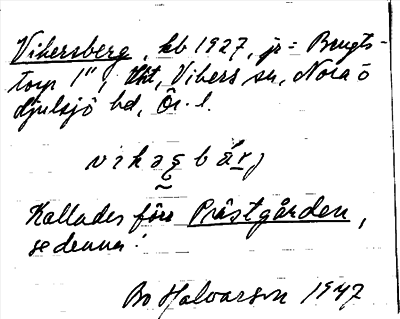 Vikersberg, kb 1927, jr = Bengts-
torp 1", Vikers sn, Nora o
Hjulsjö hd, Ör. l.
Kallades förr Prästgården,
se denna!
Bo Halvarson 1947